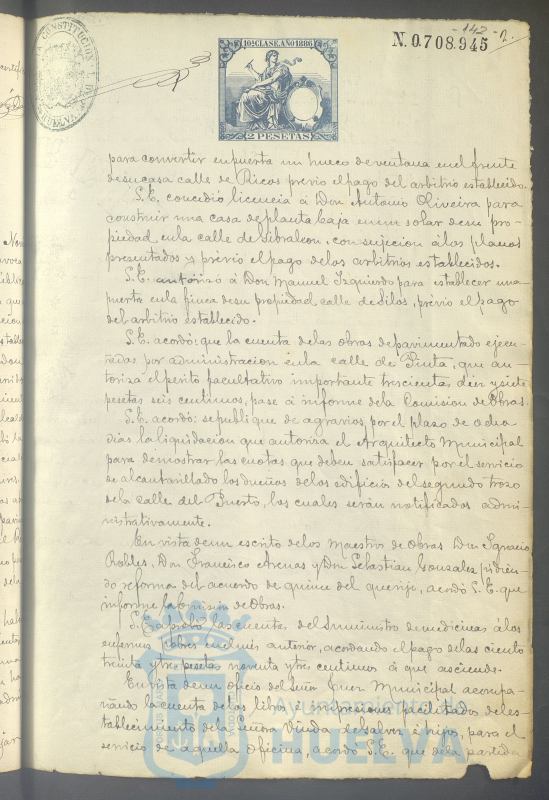 -142-
N. 0.708.945
10ª CLASE. AÑO 1886
2 PESETAS
CONSTITUCION
HUELVA
para convertir en puerta un hueco de ventana en el frente
de su casa calle de Ricos previo el pago del arbitrio establecido.
S.E. concedió licencia á Don Antonio Oliveira para
construir una casa de planta baja en un solar de su pro-
piedad en la calle de Gibraleon, con sujecion á los planos
presentados y previo el pago de los arbitrios establecidos.
S.E. autorizó á Don Manuel Izquierdo para establecer una
puerta en la finca de su propiedad calle de Silos, previo el pago
del arbitrio establecido.
S.E. acordó: que la cuenta de las obras de pavimentado ejecu-
tadas por administracion en la calle de Pinta, que au-
toriza el perito facultativo importante trescienta, diez y siete
pesetas seis centimos, pase á informe de la Comision de Obras.
S.E. acordó: se publique de agravios, por el plazo de ocho
dias la liquidacion que autoriza el Arquitecto Municipal
para demostrar las cuotas que deben satisfacer por el servicio
de alcantarillado los dueños de los edificios del segundo trozo
de la calle del Puerto, los cuales serán notificados admi-
nistrativamente.
En vista de un escrito de los Maestros de Obras Don Ignacio
Robles, Don Francisco Arenas y Don Sebastian Gonzalez pidien-
do reforma del acuerdo de quince del que rije, acordó S.E. que
informe la Comision de Obras.
S.E. aprobó las cuentas del suministro de medicinas á los
enfermos pobres en el mes anterior, acordando el pago de las ciento
treinta y tres pesetas noventa y tres centimos á que asciende.
En vista de un oficio del Señor Juez Municipal acompa-
ñando la cuenta de los libros é impresiones facilitados del es-
tablecimiento de la Señora Viuda de Galvez é hijos, para el
servicio de aquella oficina, acordó S.E. que de la partida
Ayuntamiento de
HUELVA